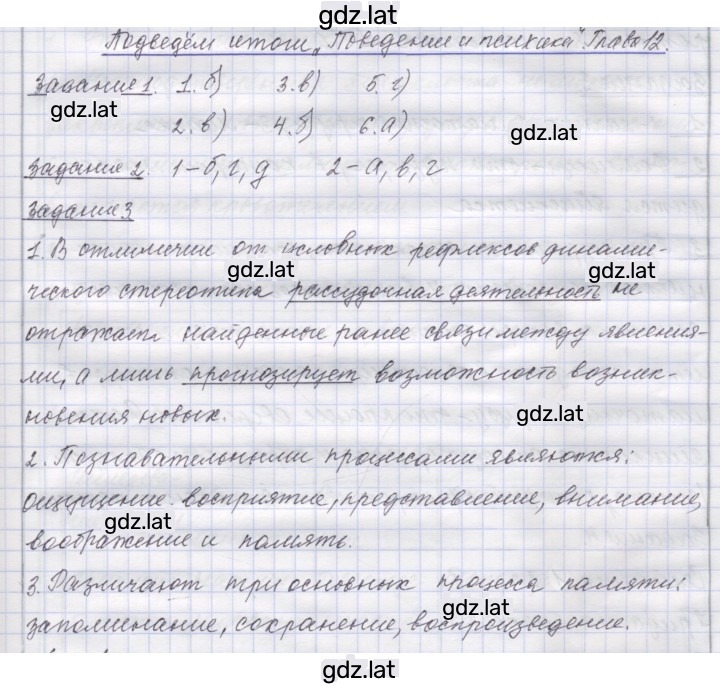 gdz.lat
Подведём итоги „Поведение и психика" Глава 12.
Задание 1. 1. б) 3. в) 5. г)
gdz.lat
2. в) 4. б) 6. а)
gdz.lat
Задание 2. 1 – б, г, д 2 – а, в, г
Задание 3
1. В отличие от условных рефлексов динами-
gdz.lat gdz.lat
ческого стереотипа рассудочная деятельность не
отражает найденные ранее связи между явления-
ми, а лишь прогнозирует возможность возник-
новения новых.
gdz.lat
2. Познавательными процессами являются:
ощущение. восприятие, представление, внимание,
gdz.lat
воображение и память.
3. Различают три основных процесса памяти:
gdz.lat
запоминание, сохранение, воспроизведение.
gdz.lat